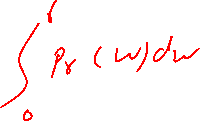 ∫₀ʳ Pr (w) dw